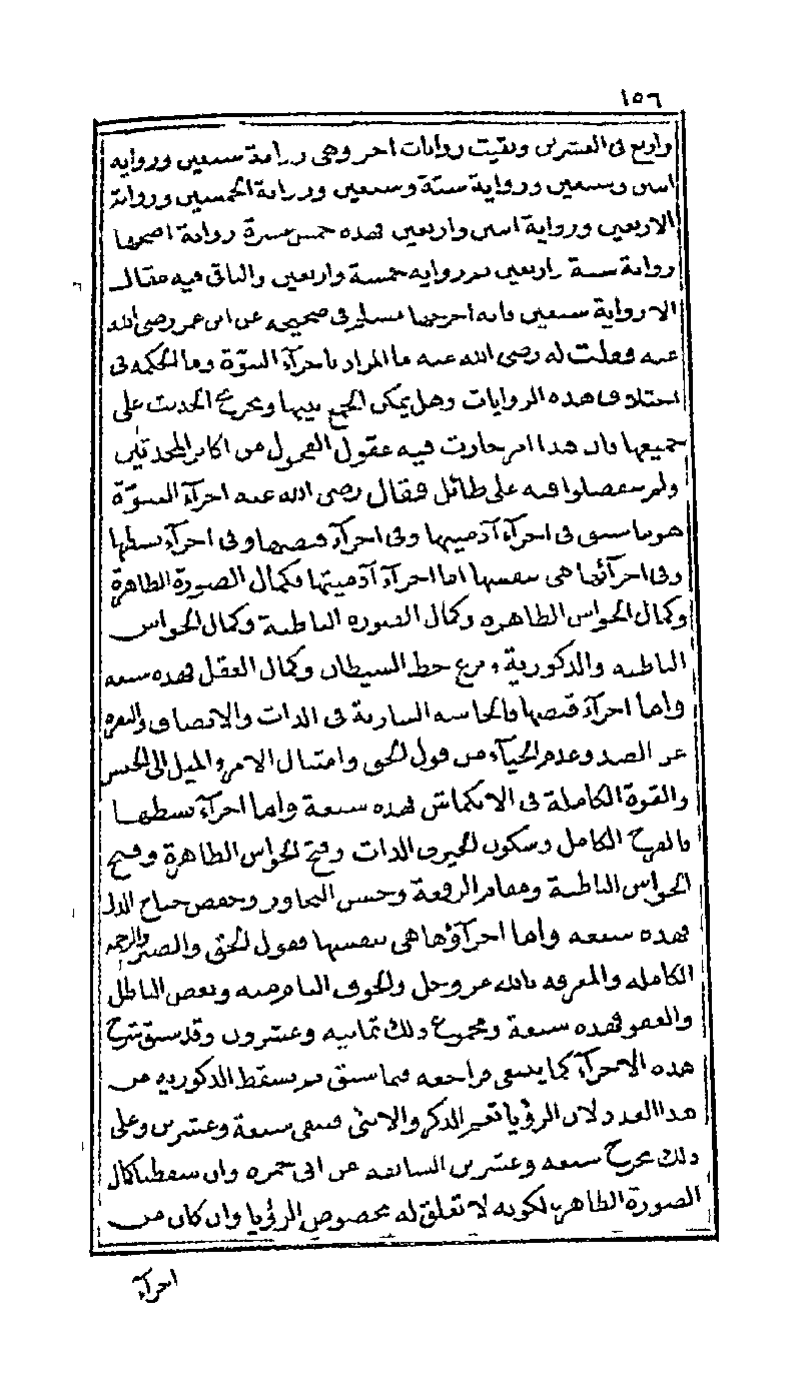 ١٥٦
واربع في العشرين وبقيت روايات اخر وهي رواية سبعين ورواية
اثنين وسبعين ورواية ستة وسبعين ورواية الخمسين ورواية
الاربعين ورواية اثنين واربعين فهذه خمس عشرة رواية اصحها
رواية ستة واربعين ثم رواية خمسة واربعين والباقي فيه مقال
الا رواية سبعين فانه اخرجها مسلم في صحيحه عن ابن عمر رضي الله
عنه فقلت له رضي الله عنه ما المراد باجزآء النبوّة وما الحكمة في
اختلاف هذه الروايات وهل يمكن الجمع بينها ويخرج الحديث على
جميعها فان هذا امر حارت فيه عقول الفحول من اكابر المحدثين
ولم يتحصلوا فيه على طائل فقال رضي الله عنه اجزآء النبوّة
هو ما سبق في اجزآء آدميتها وفي اجزآء قبضها وفي اجزآء بسطها
وفي اجزآئها هي بنفسها اما اجزآء آدميتها فكمال الصورة الظاهرة
وكمال الحواس الظاهرة وكمال الصورة الباطنة وكمال الحواس
الباطنة والذكورية ونزع حظ الشيطان وكمال العقل فهذه سبعة
واما اجزآء قبضها فالحاسة السارية في الذات والانصاف والنفرة
عن الضد وعدم الحيآء من قول الحق وامتثال الامر والميل الى الجنس
والقوة الكاملة في الانكماش فهذه سبعة واما اجزآء بسطها
فالفرح الكامل وسكون الخير في الذات وفتح الحواس الظاهرة وفتح
الحواس الباطنة ومقام الرفعة وحسن التجاوز وخفض جناح الذل
فهذه سبعة واما اجزآؤها هي بنفسها فقول الحق والصبر والرحمة
الكاملة والمعرفة بالله عز وجل والخوف التام منه وبغض الباطل
والعفو فهذه سبعة ومجموع ذلك ثمانية وعشرون وقد سبق شرح
هذه الاجزآء كما ينبغي فراجعه فيما سبق ثم يسقط الذكورية من
هذا العدد لان الرؤيا تعم الذكر والانثى فتبقى سبعة وعشرين وعلى
ذلك يخرج سبعة وعشرين السابقة عن ابي جمره وان سقطنا كمال
الصورة الظاهرة لكونه لا تعلق له بخصوص الرؤيا وان كان من
اجزآء